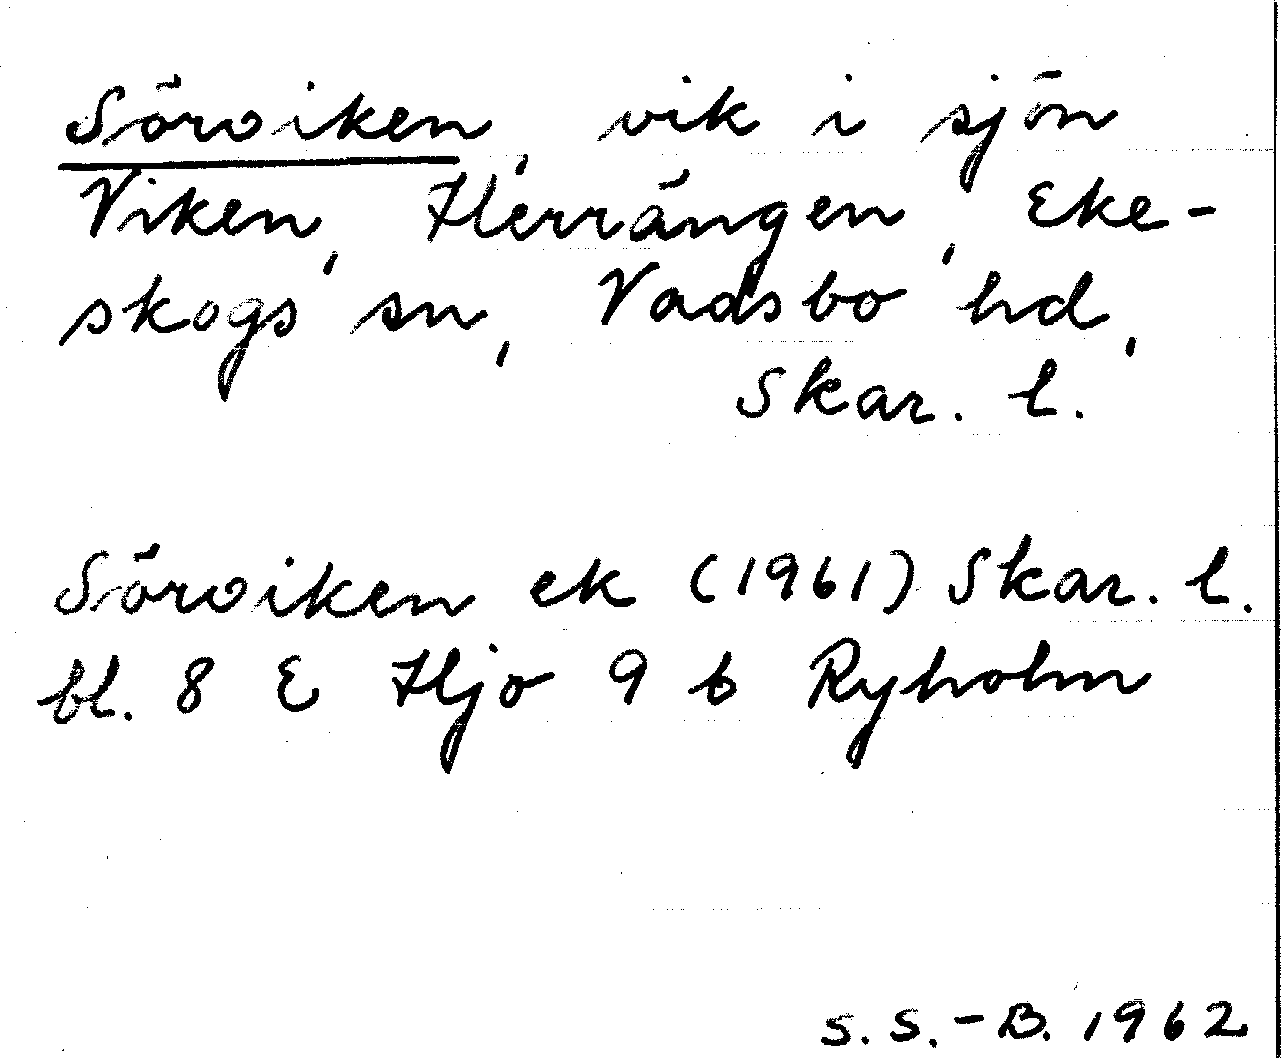 Sörviken, vik i sjön
Viken, Herrängen, Eke-
skogs sn, Vadsbo hd,
Skar. l.
Sörviken ek (1961) Skar. l.
bl. 8 E Hjo 9 b Ryholm
S. S.-B. 1962